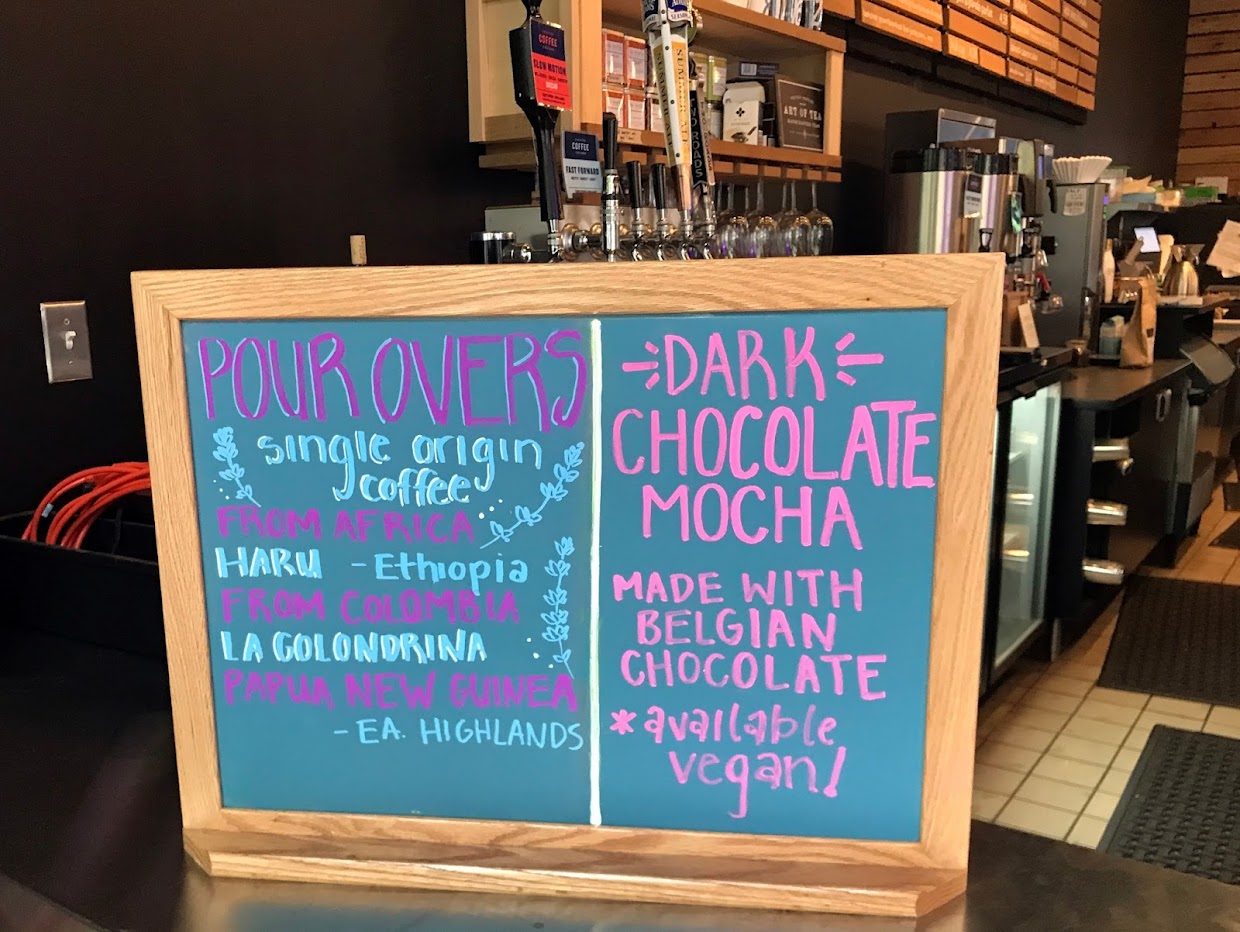 POUR OVERS
single origin
coffee
FROM AFRICA
HARU - Ethiopia
FROM COLOMBIA
LA GOLONDRINA
PAPUA NEW GUINEA
- EA. HIGHLANDS
DARK
CHOCOLATE
MOCHA
MADE WITH
BELGIAN
CHOCOLATE
*available
vegan!
COFFEE
SLOW MOTION
COFFEE
FAST FORWARD
TWO ROADS
ART OF TEA